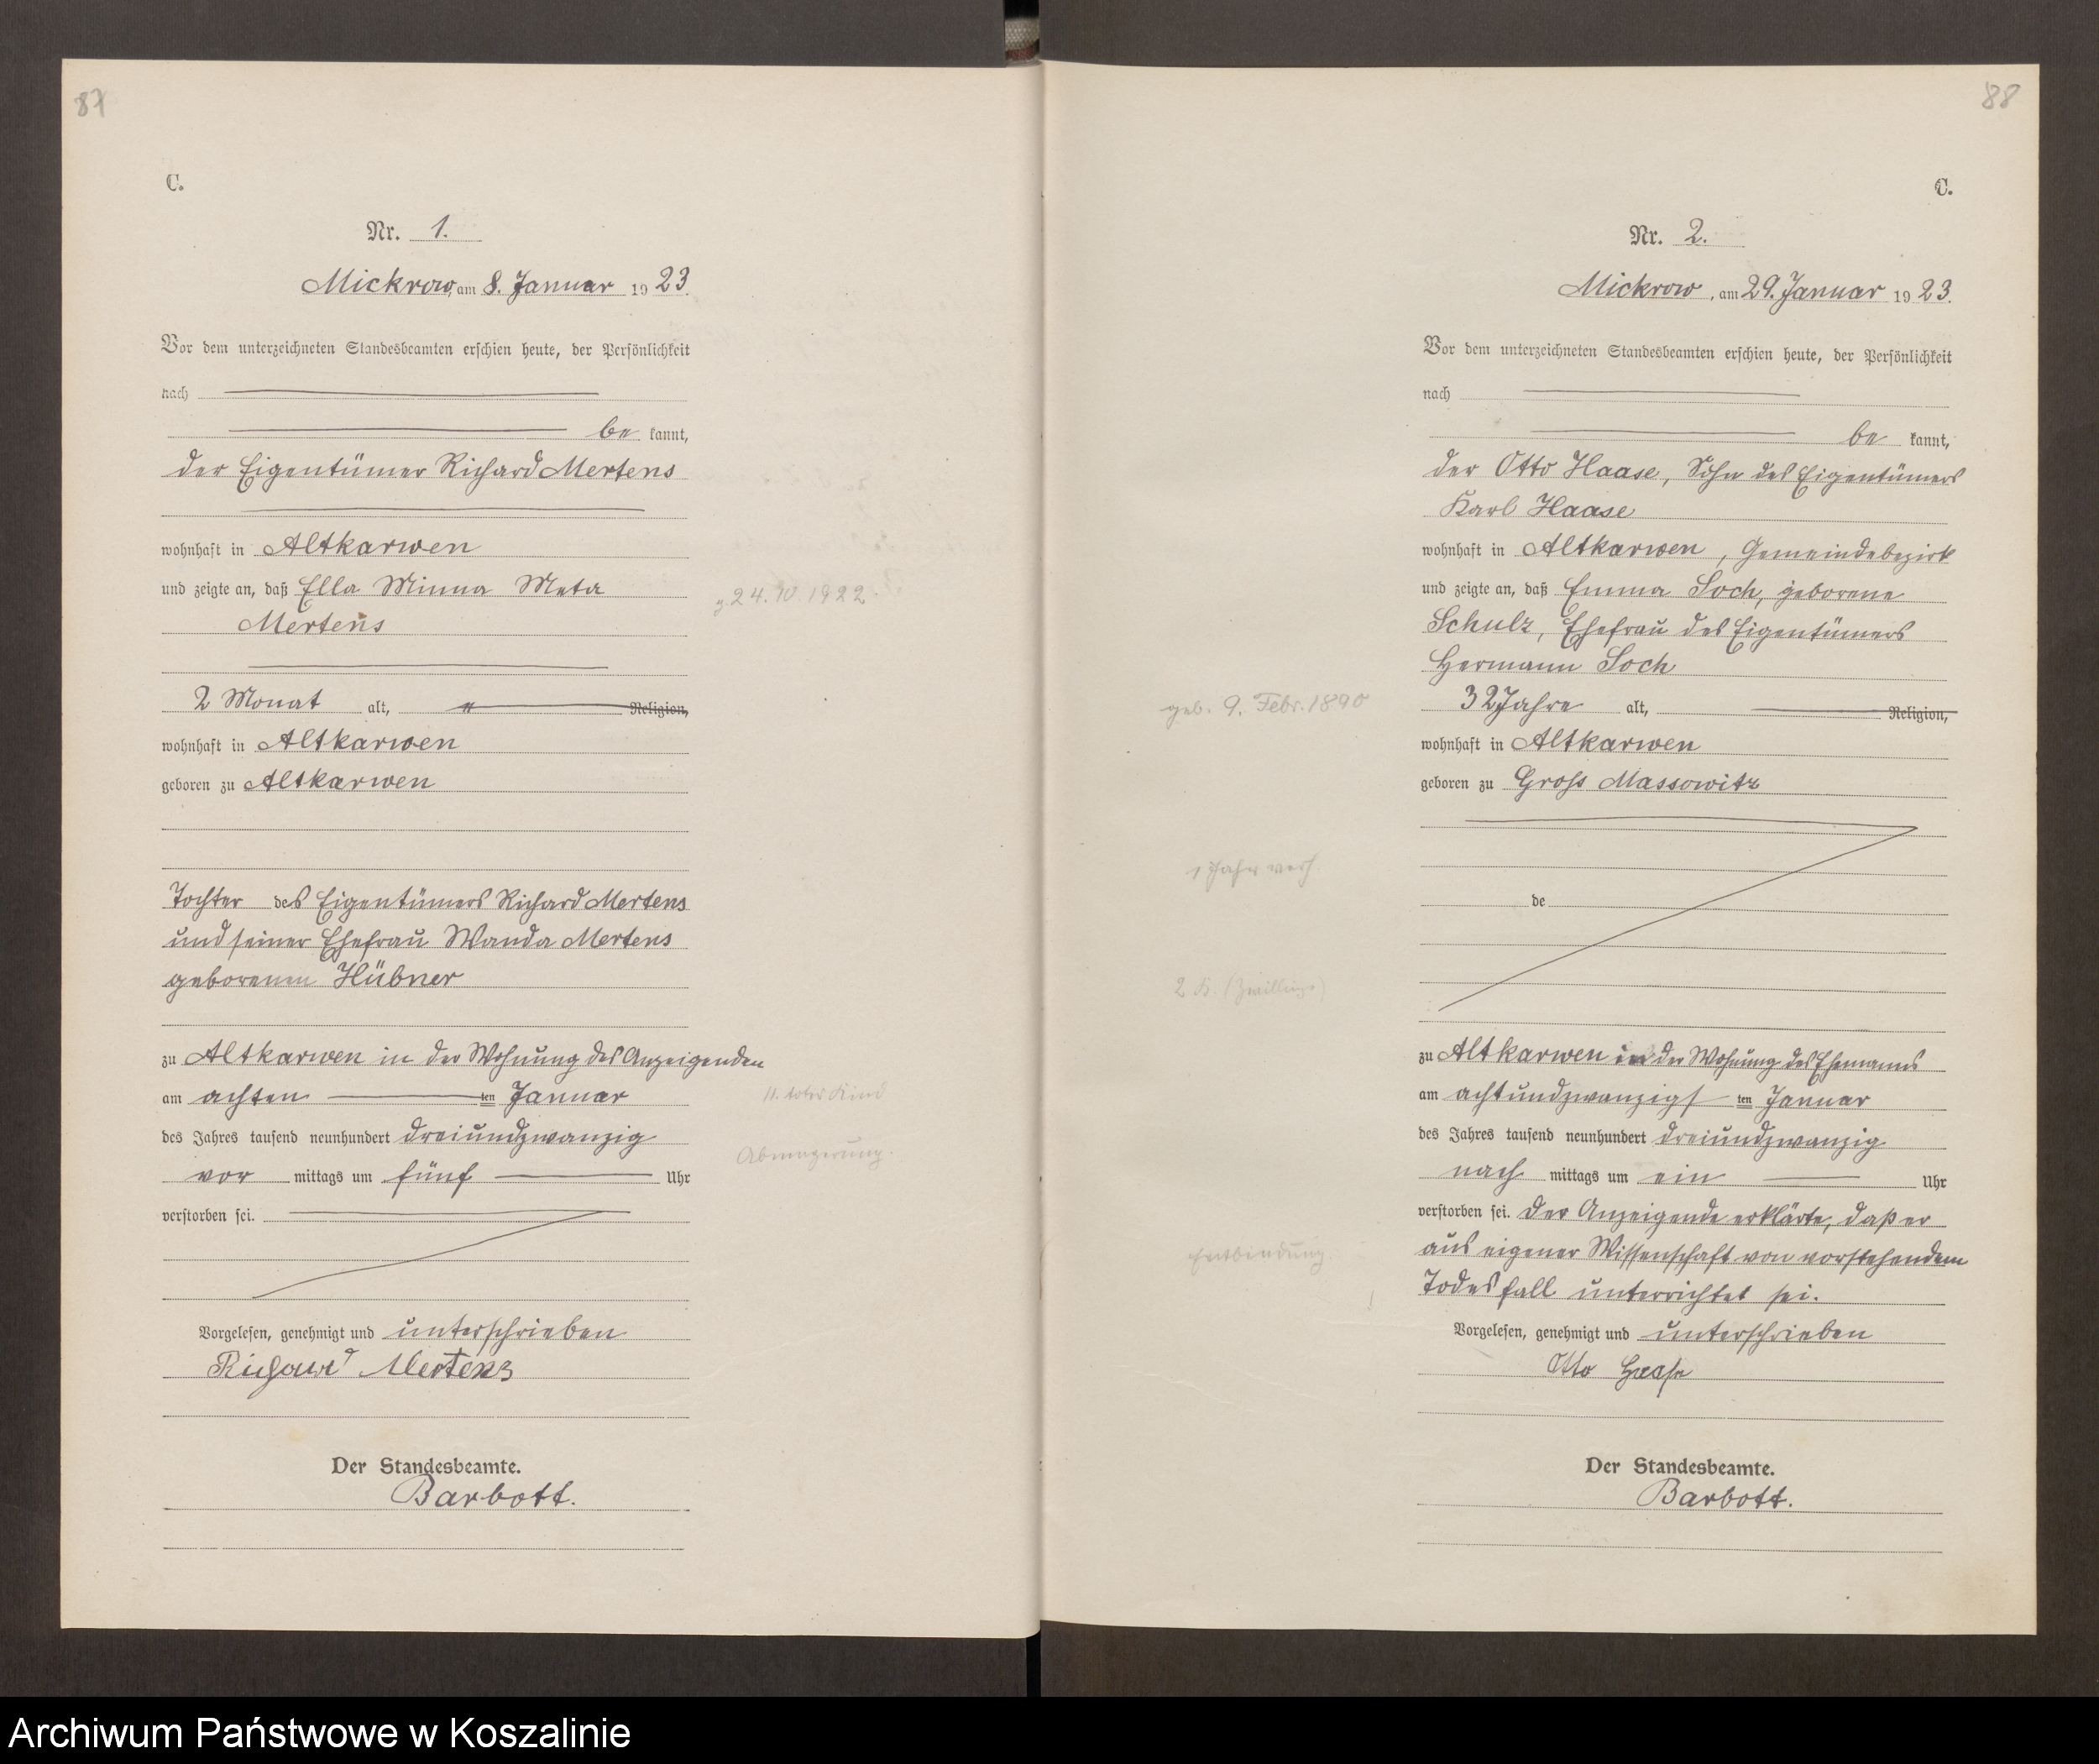 87
C.
Nr. 1.
Mickrow, am 8. Januar 1923.
Vor dem unterzeichneten Standesbeamten erschien heute, der Persönlichkeit
nach
be kannt,
der Eigentümer Richard Mertens
wohnhaft in Altkarwen
und zeigte an, daß Ella Minna Meta
Mertens
g. 24.10.1922.
2 Monat alt, Religion,
wohnhaft in Altkarwen
geboren zu Altkarwen
Tochter des Eigentümers Richard Mertens
und seiner Ehefrau Wanda Mertens
geborenen Hübner
zu Altkarwen in der Wohnung des Anzeigenden
am achten ten Januar
11. totes Kind
des Jahres tausend neunhundert dreiundzwanzig
Abmagerung.
vor mittags um fünf Uhr
verstorben sei.
Vorgelesen, genehmigt und unterschrieben
Richard Mertens
Der Standesbeamte.
Barbott.
88
C.
Nr. 2.
Mickrow, am 29. Januar 1923.
Vor dem unterzeichneten Standesbeamten erschien heute, der Persönlichkeit
nach
be kannt,
der Otto Haase, Sohn des Eigentümers
Karl Haase
wohnhaft in Altkarwen, Gemeindebezirk
und zeigte an, daß Emma Soch, geborene
Schulz, Ehefrau des Eigentümers
Hermann Soch
geb. 9. Febr. 1890
32 Jahre alt, Religion,
wohnhaft in Altkarwen
geboren zu Gross Massowitz
1 Jahr verh.
de
2 K. (Zwillinge)
zu Altkarwen in der Wohnung des Ehemanns
am achtundzwanzigs ten Januar
des Jahres tausend neunhundert dreiundzwanzig
nach mittags um ein Uhr
verstorben sei. Der Anzeigende erklärte, daß er
aus eigener Wissenschaft von vorstehendem
Entbindung.
Todesfall unterrichtet sei.
Vorgelesen, genehmigt und unterschrieben
Otto Haase
Der Standesbeamte.
Barbott.
Archiwum Państwowe w Koszalinie